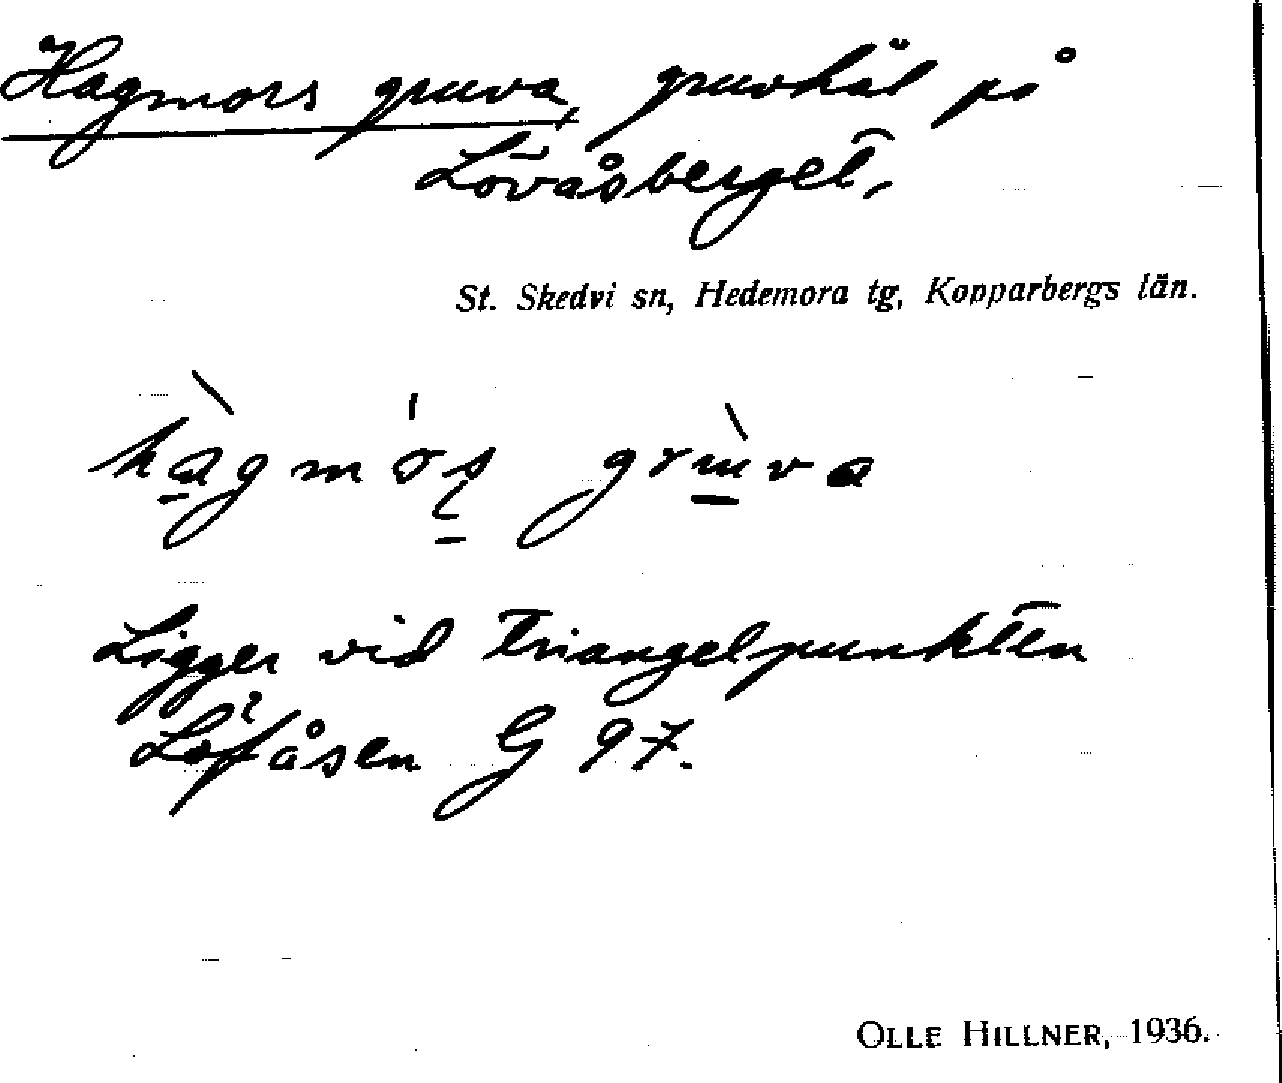 Hagmors gruva, gruvhål på
Lövåsberget.
St. Skedvi sn, Hedemora tg, Kopparbergs län.
Ligger vid Triangelpunkten
Löfåsen G 97.
OLLE HILLNER, 1936.